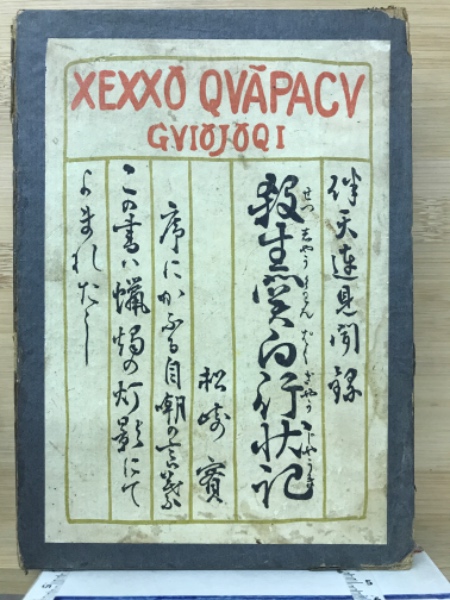 XEXXŌ QVĀPACV
GVIŎJŎQI
伴天連見聞録
殺生関白行状記
せつ しやう くわん ぱく ぎやう じやうき
松崎實
序にかふる自嘲の言葉
この書ハ蝋燭の灯影にて
よまれたし
5